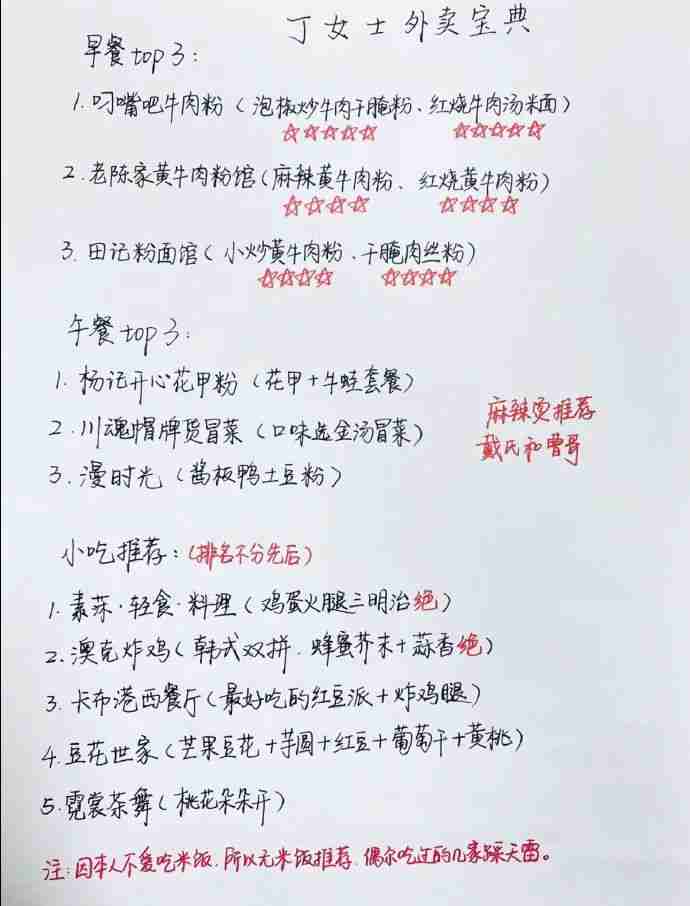 丁女士外卖宝典
早餐top3：
1.叼嘴吧牛肉粉（泡椒炒牛肉干腌粉、红烧牛肉汤米面）
☆☆☆☆☆ ☆☆☆☆☆
2.老陈家黄牛肉粉馆（麻辣黄牛肉粉、红烧黄牛肉粉）
☆☆☆☆ ☆☆☆☆
3.田记粉面馆（小炒黄牛肉粉、干腌肉丝粉）
☆☆☆☆ ☆☆☆☆
午餐top3：
1.杨记开心花甲粉（花甲+牛蛙套餐）
2.川魂帽牌货冒菜（口味选金汤冒菜）
3.漫时光（酱板鸭土豆粉）
麻辣烫推荐
戴氏和曹哥
小吃推荐：（排名不分先后）
1.素莯·轻食·料理（鸡蛋火腿三明治绝）
2.澳克炸鸡（韩式双拼.蜂蜜芥末+蒜香绝）
3.卡布港西餐厅（最好吃的红豆派+炸鸡腿）
4.豆花世家（芒果豆花+芋圆+红豆+葡萄干+黄桃）
5.霓裳茶舞（桃花朵朵开）
注：因本人不爱吃米饭.所以无米饭推荐.偶尔吃过的几家踩天雷。